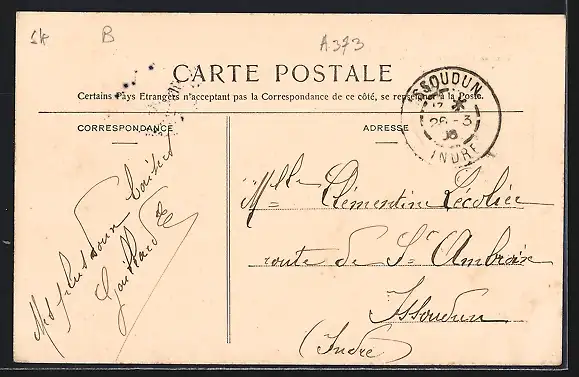 1k B A373
CARTE POSTALE
Certains Pays Etrangers n'acceptent pas la Correspondance de ce côté, se renseigner à la Poste.
CORRESPONDANCE
ADRESSE
ISSOUDUN
26-3
INDRE
Mes plus doux baisers
Melle Clémentine Lécolier
route de St Ambroise
Issoudun
(Indre)